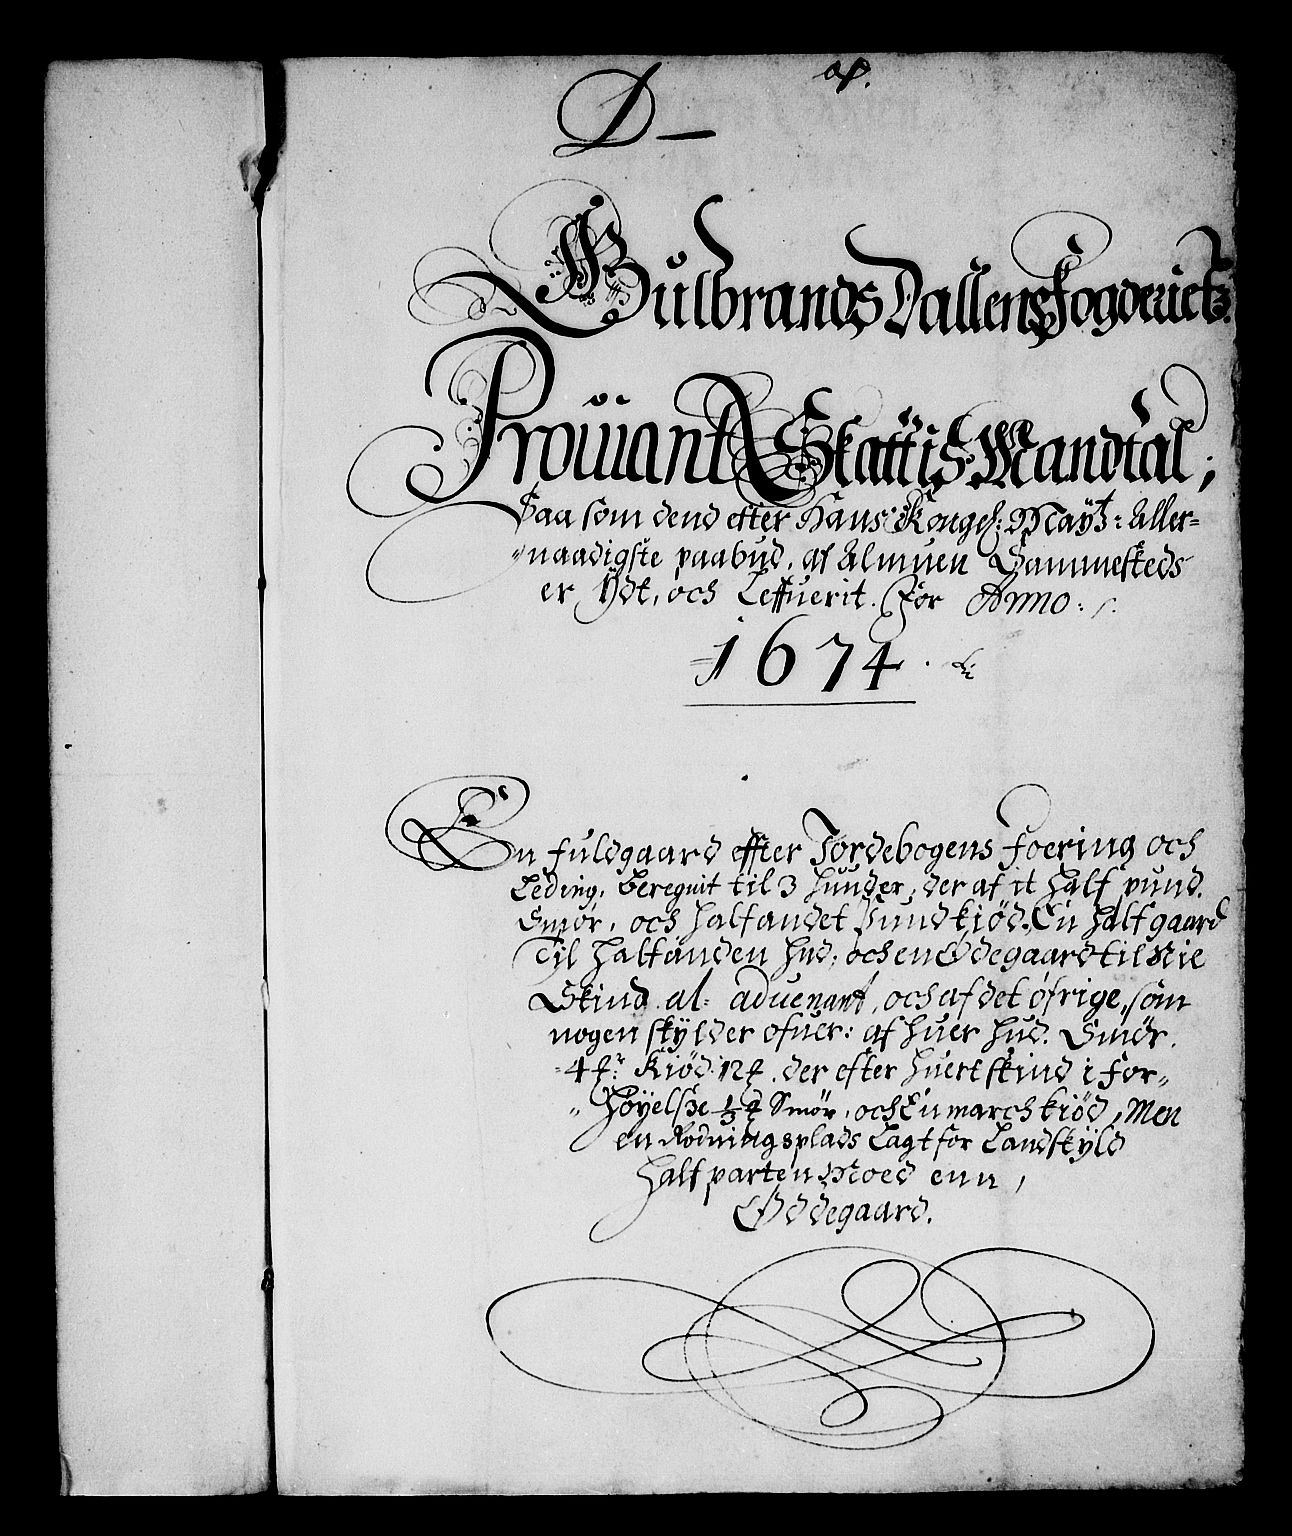 D
Gulbrands Dallens Fogderietz
Prouiant Skattis Mandtal;
Saa som dend efter Hans Kongel: Maytz: Aller-
naadigste paabud, af Almuen Sammesteds
er Ydt, och Leffuerit. For Anno:
1674.
En fuldgaard effter Jordebogens foering och
Leding, beregnit til 3 hunder, der af it half pund.
Smør, och halfandet pund kiød. En halfgaard
Til halfanden hud, och en Ødegaard til Nie
Skind al: aduenant, och af det øfrige, som
nogen skylder ofuer: af huer hud. Smør.
4 ℔: Kiød. 12 ℔. der efter huert skind i for-
høyelse ⅓ ℔ Smør, och En march kiød, Men
en Rødningsplads Lagt for Landskyld
half parten Moed enn,
Øddegaard.